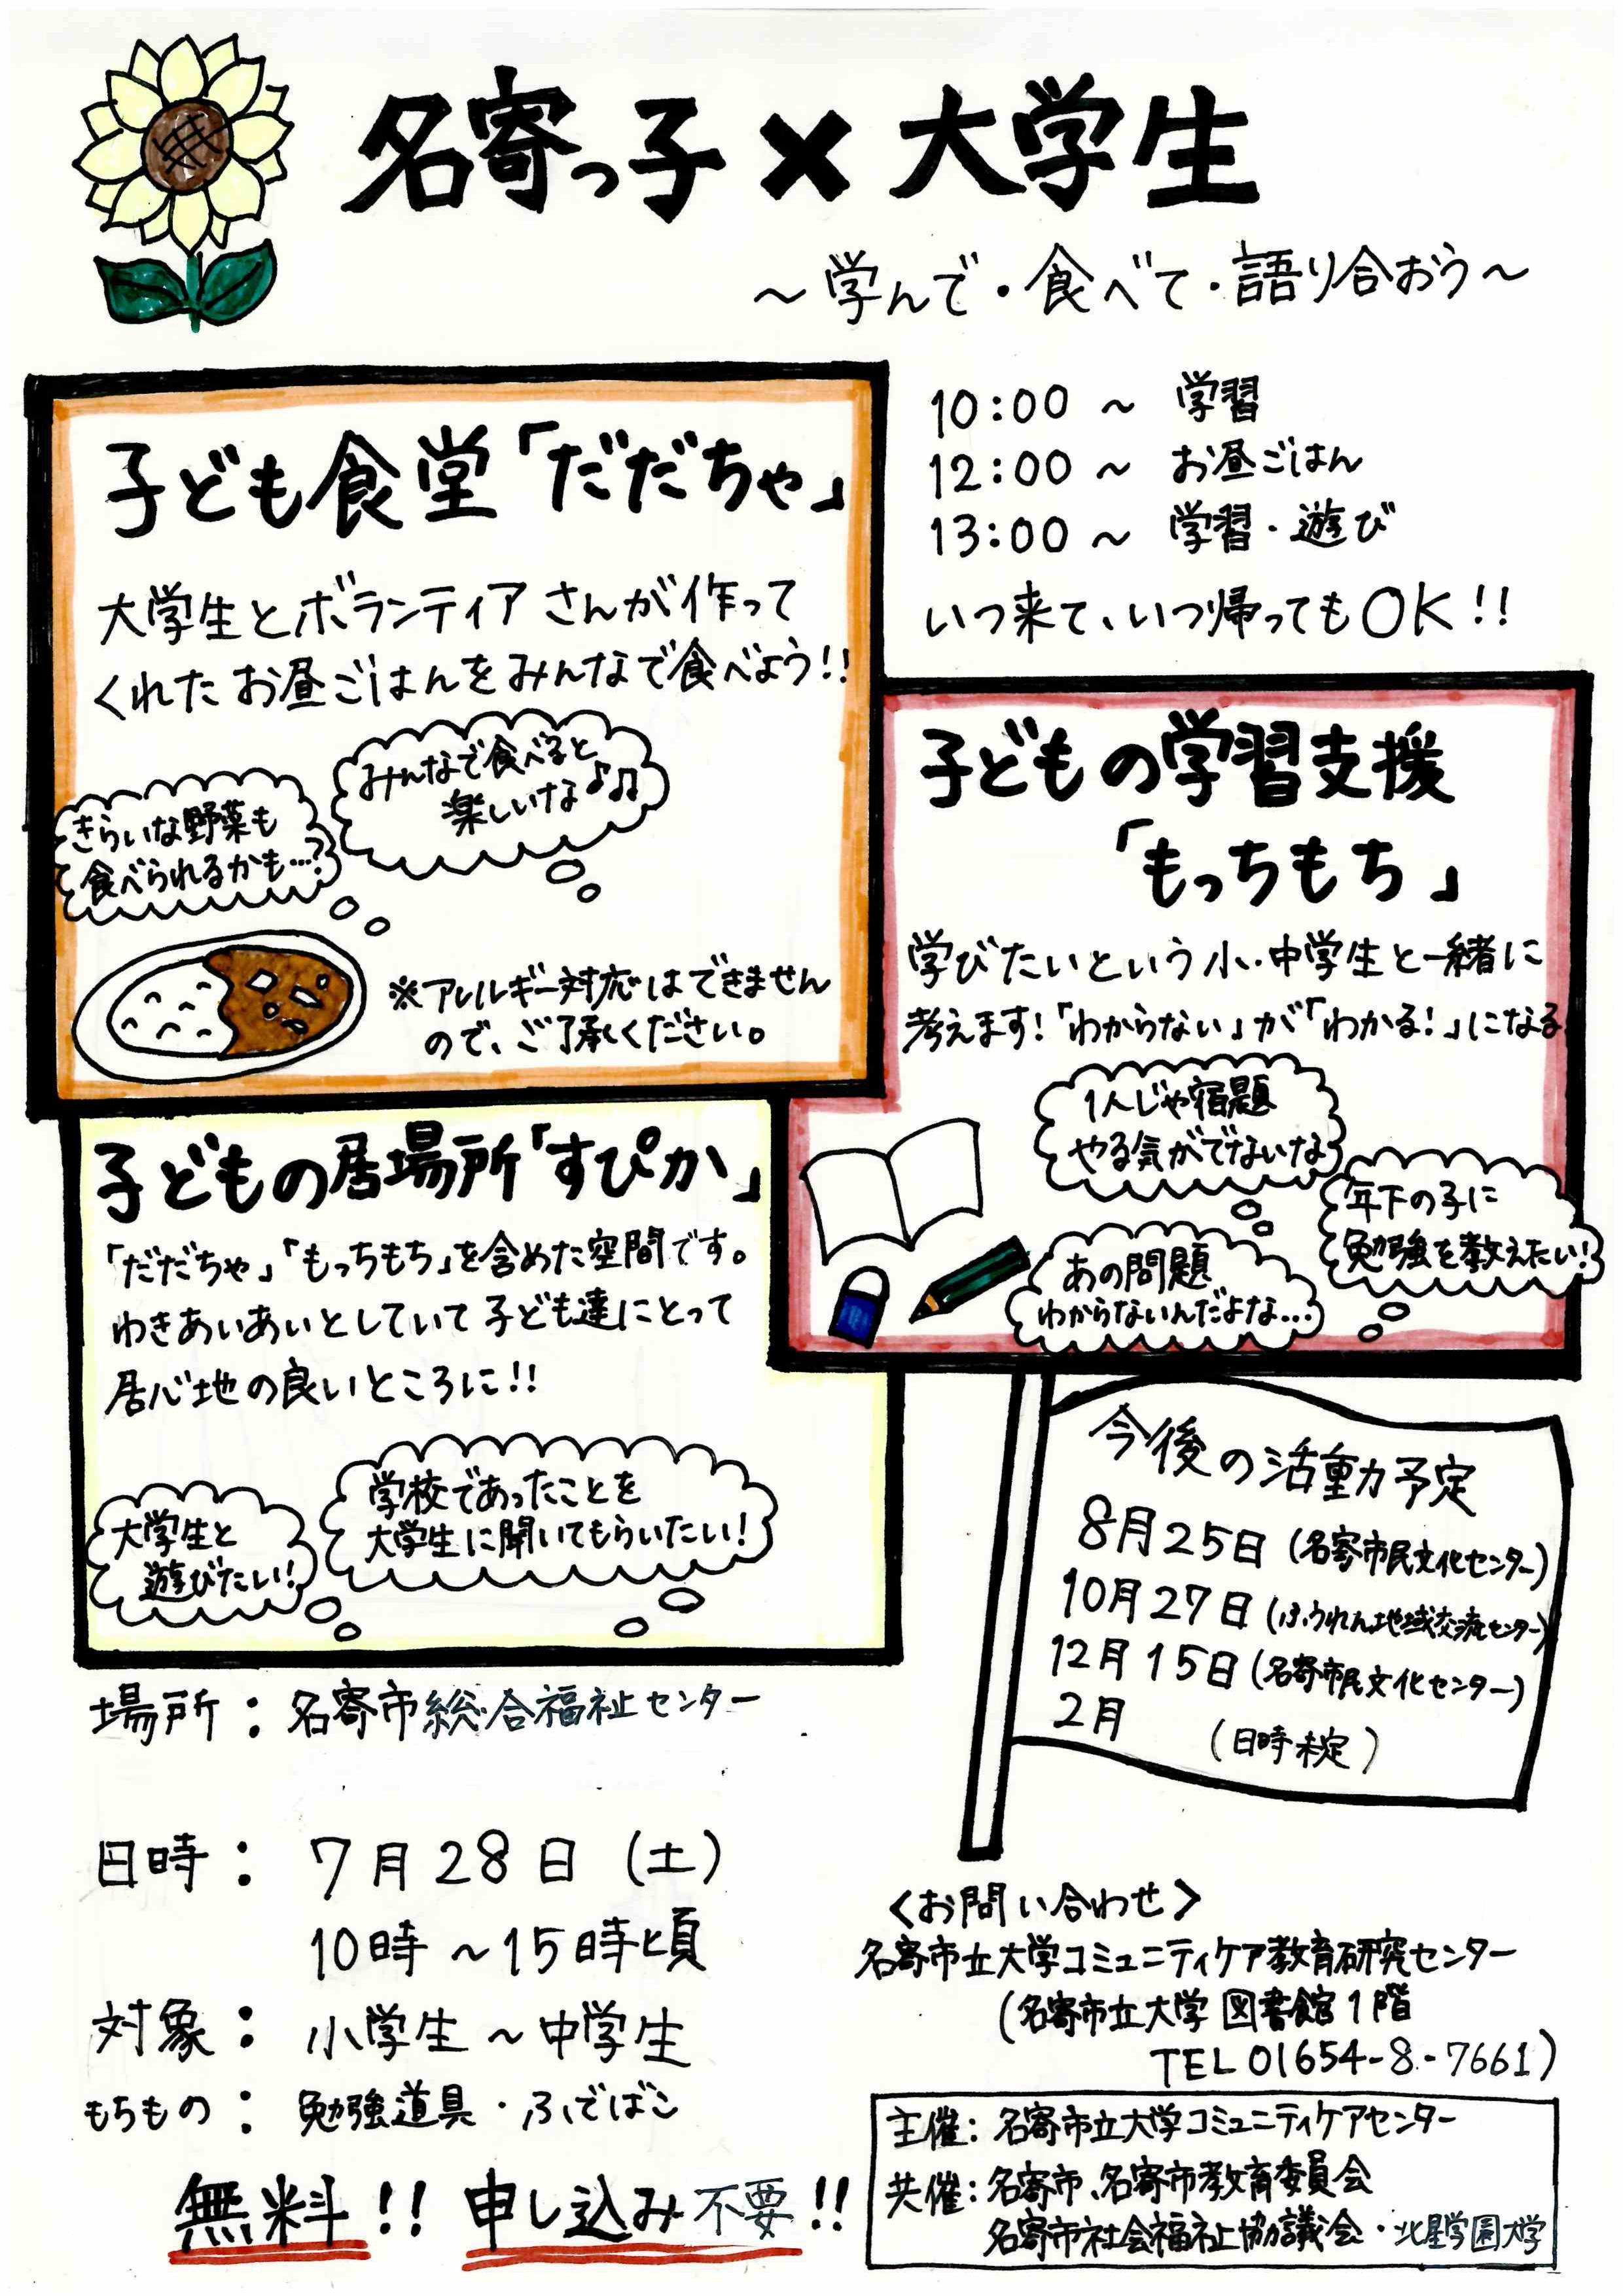 名寄っ子×大学生
～学んで・食べて・語り合おう～
10:00 ～ 学習
12:00 ～ お昼ごはん
13:00 ～ 学習・遊び
いつ来て、いつ帰ってもOK!!
子ども食堂「だだちゃ」
大学生とボランティアさんが作って
くれたお昼ごはんをみんなで食べよう!!
みんなで食べると
楽しいな♪♫
きらいな野菜も
食べられるかも…?
※アレルギー対応はできません
ので、ご了承ください。
子どもの学習支援
「もっちもち」
学びたいという小・中学生と一緒に
考えます!「わからない」が「わかる!」になる
1人じゃ宿題
やる気がでないな
年下の子に
勉強を教えたい!
あの問題
わからないんだよな…
子どもの居場所「すぴか」
「だだちゃ」「もっちもち」を含めた空間です。
わきあいあいとしていて子ども達にとって
居心地の良いところに!!
学校であったことを
大学生に聞いてもらいたい!
大学生と
遊びたい!
今後の活動予定
8月25日(名寄市民文化センター)
10月27日(ふうれん地域交流センター)
12月15日(名寄市民文化センター)
2月 (日時未定)
場所:名寄市総合福祉センター
日時: 7月28日(土)
10時～15時頃
対象: 小学生～中学生
もちもの: 勉強道具・ふでばこ
無料!! 申し込み不要!!
<お問い合わせ>
名寄市立大学コミュニティケア教育研究センター
(名寄市立大学 図書館1階
TEL 01654-8-7661)
主催:名寄市立大学コミュニティケアセンター
共催:名寄市、名寄市教育委員会
名寄市社会福祉協議会・北星学園大学